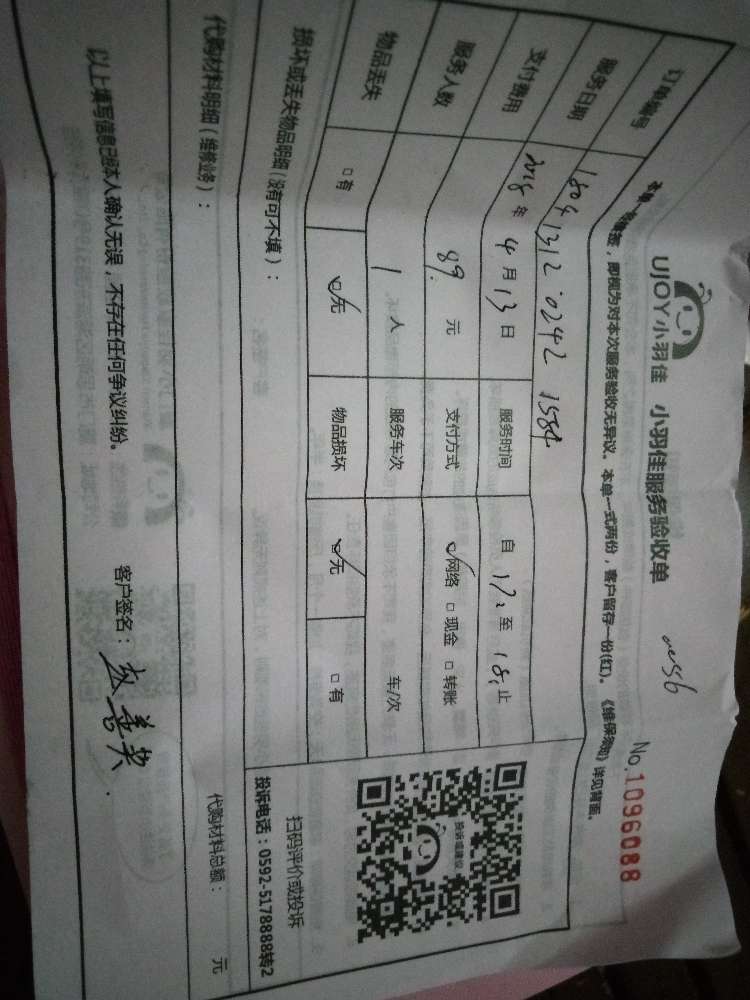 UJOY小羽佳 小羽佳服务验收单
No.1096088
即视为对本次服务验收无异议。本单一式两份，客户留存一份(红)。《维保须知》详见背面。
订单编号 1804 1312 0242 1584
服务日期 2018年4月13日 服务时间 自17:至18:止
支付费用 89.元 支付方式 ☑网络 □现金 □转账
服务人数 1人 服务车次 车/次
物品丢失 □有 ☑无 物品损坏 ☑无 □有
损坏或丢失物品明细（没有可不填）：
投诉或建议
扫码评价或投诉
投诉电话：0592-5178888转2
代购材料明细（维修业务）：
代购材料总额： 元
以上填写信息已经本人确认无误，不存在任何争议纠纷。 客户签名：